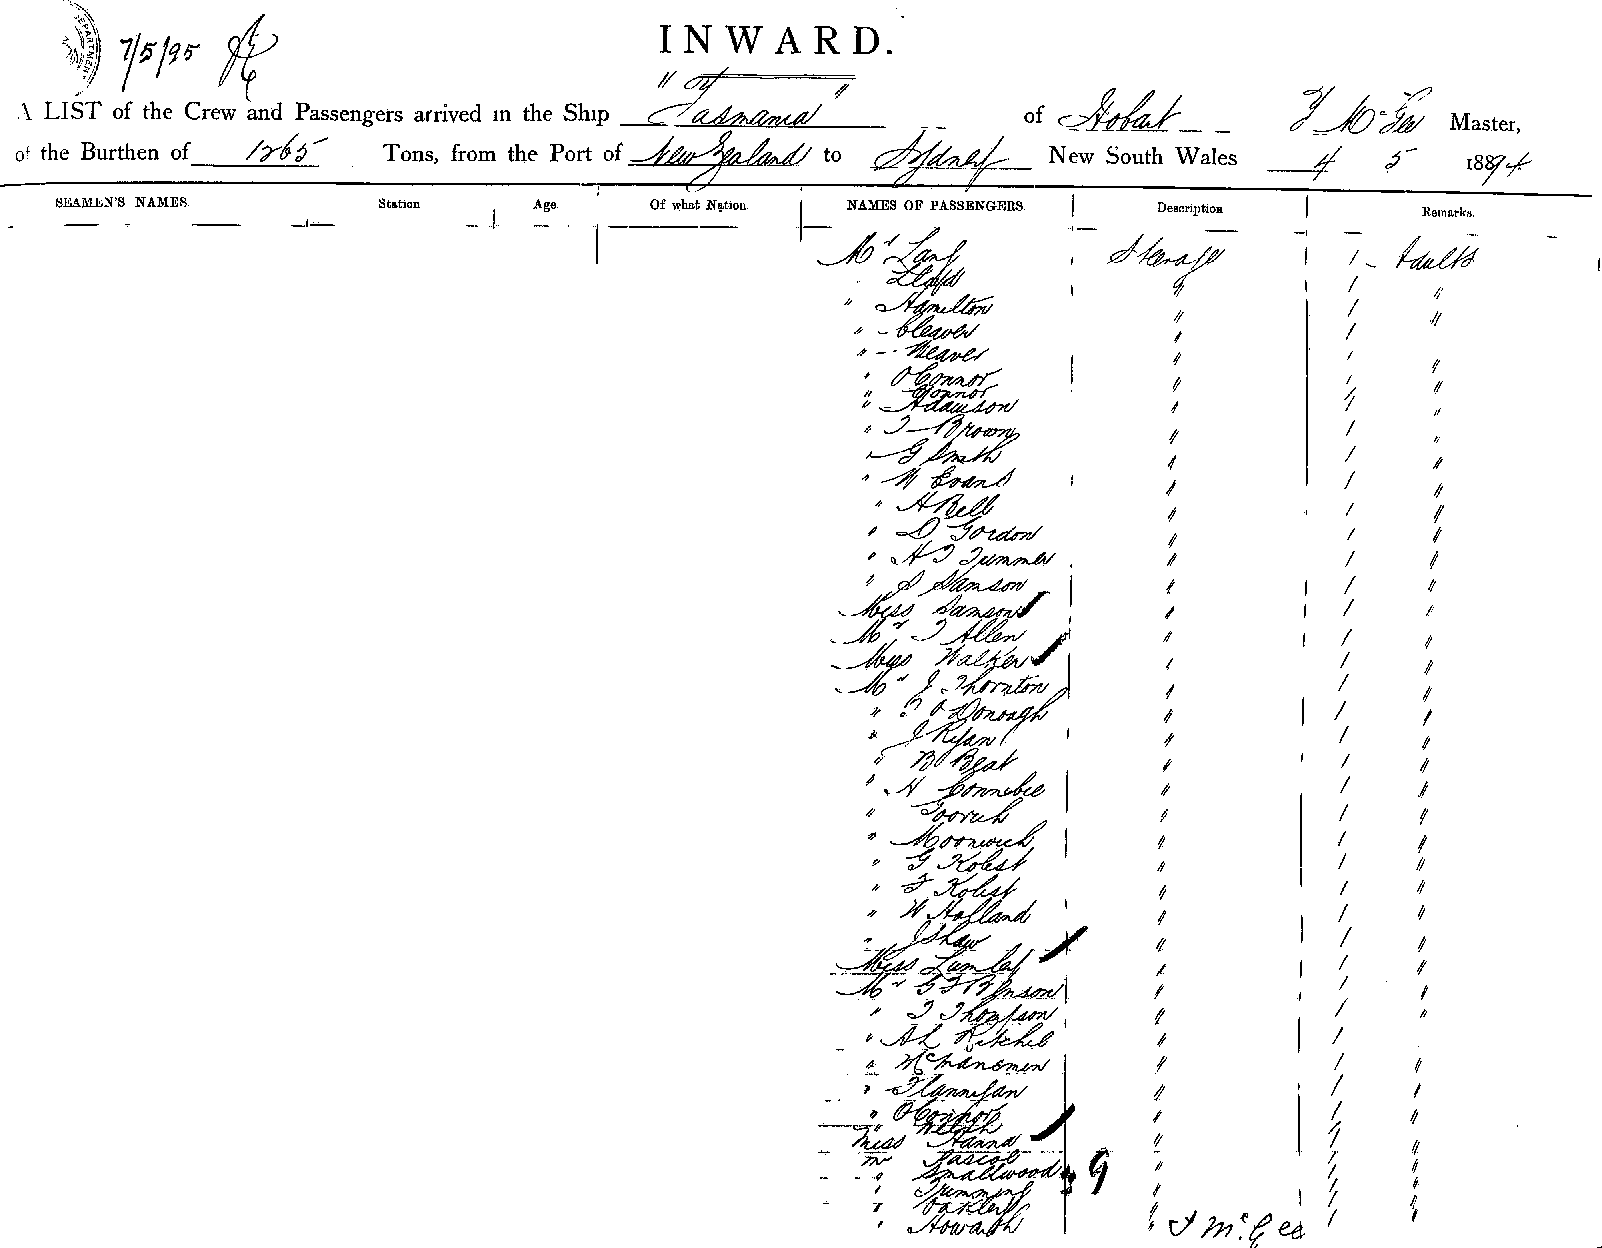 7/5/95
INWARD.
" of
A LIST of the Crew and Passengers arrived in the Ship Tasmania " of Hobart T McGee Master,
of the Burthen of 1265 Tons, from the Port of New Zealand to Sydney New South Wales 4 5 1894
SEAMEN'S NAMES. Station Age. Of what Nation. NAMES OF PASSENGERS. Description Remarks.
Mr Lang Steerage 1 - Adults
Lloyd " 1 "
" Hamilton " 1 "
" - Cleaver " 1
" - Weaver " 1 "
" O'Connor " 1 "
" Connor
" Adamson " 1 "
" T Brown " 1 "
" G Smith " 1 "
" W Evans " 1 "
" A Bell " 1 "
" D Gordon " 1 "
" H T Tummer " 1 "
" S Samson " 1 "
Miss Samson " 1 "
Mr T Allen " 1 "
Miss Walker " 1 "
Mr J Thornton " 1 "
" T O'Donoagh " 1 "
" J Ryan " 1 "
" B Beat " 1 "
" H Connebee " 1 "
" " 1 "
" Moonwich " 1 "
" G Kobest " 1 "
" F Kobest " 1 "
" W Holland " 1 "
" J Shaw " 1 "
Miss Lumley " 1 "
Mr G F Bynson " 1 "
" T Thompson " 1 "
" A L Ritchie " 1
" McManemin " 1 "
" Flannigan " 1 "
" O'Connor " 1 "
" Welsh
Miss Hanna " 1 "
Mr Pascol " 1 "
" Smallwood 9 " 1 "
" Trimming " 1 "
" Oakley " 1 "
" Howarth " T McGee 1 "